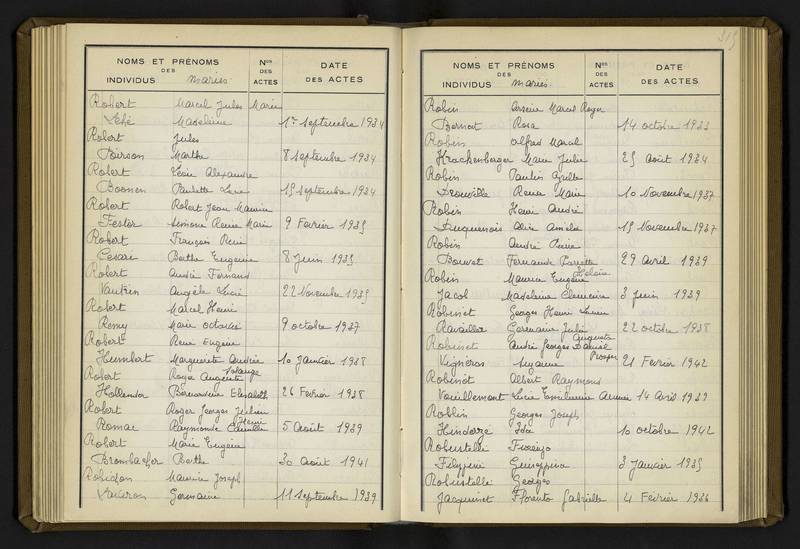 NOMS ET PRÉNOMS DES INDIVIDUS mariés Nos DES ACTES DATE DES ACTES
Robert Marcel Jules Marie
Madeleine 1er septembre 1934
Robert Jules
Poirson Marthe 8 septembre 1934
Robert Léon Alexandre
Boonen Paulette 15 septembre 1934
Robert Robert Jean Maurice
Fester Simone Renée Marie 9 Février 1935
Robert François René
Cesari Berthe Eugénie 8 Juin 1935
Robert André Fernand
Vautrin Angèle Lucie 22 Novembre 1935
Robert Marcel Henri
Remy Marie octavie 9 octobre 1937
Robert René Eugène
Humbert Marguerite Andrée 10 Janvier 1938
Robert Roger Auguste Solange
Hollander Bernardine Elisabeth 26 Février 1938
Robert Roger Georges Henri
Romac Raymonde 5 Août 1939
Robert Marie Eugène
Brombacher Berthe 30 août 1941
Robidon Maurice Joseph
Germaine 11 septembre 1939
315
NOMS ET PRÉNOMS DES INDIVIDUS mariés Nos DES ACTES DATE DES ACTES
Robin Arsène Marcel Roger
Rosa 14 octobre 1933
Robin Alfred Marcel
Krachenberger Marie Julie 25 août 1934
Robin Paulin
Renée Marie 10 Novembre 1937
Robin Henri André
Duquenois Alice Amélie 15 Novembre 1937
Robin André
Bouvet Fernande Pierrette 29 Avril 1939
Robin Maurice Eugène Héloïse
Jacob Madeleine Clémence 3 Juin 1939
Robinet Georges Henri
Ravailler Germaine Julie Augusta 22 octobre 1938
Robinet André Georges Daniel Prosper
Vigneron Suzanne 21 Février 1942
Robinot Albert Raymond
Vuillemont Lucie Aimée 14 avril 1939
Roblin Georges Joseph
Ida 10 octobre 1942
Robustelli
Filippini Giuseppina 3 Janvier 1935
Robustelli Georges
Jacquinet Gabrielle 4 Février 1936